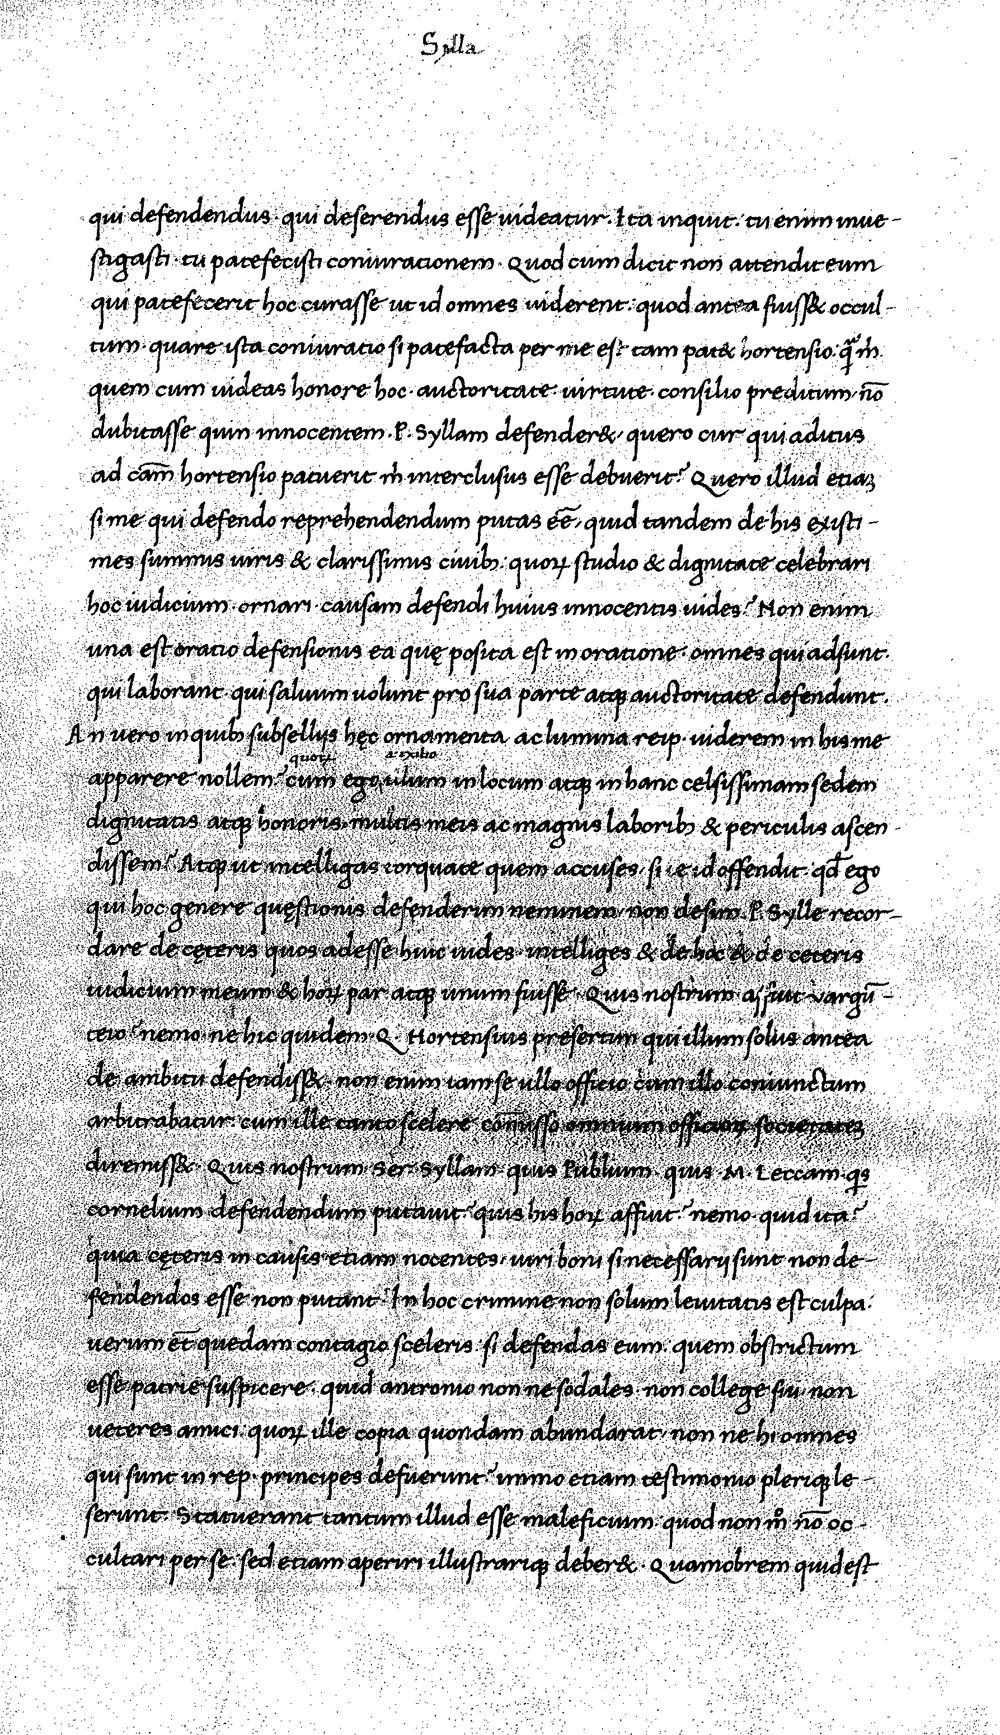 Sylla
qui defendendus· qui deserendus esse uideatur. Ita inquit· tu enim inue-
stigasti· tu patefecisti coniurationem· Quod cum dicit non attendit eum
qui patefecerit hoc curasse ut id omnes uiderent· quod antea fuiss& occul-
tum· quare ista coniuratio si patefacta per me est· tam pat& hortensio· q̃ m̃
quem cum uideas honore hoc· auctoritate· uirtute· consilio preditum· nō
dubitasse quin innocentem· P· Syllam defender&· quero cur qui aditus
ad cām hortensio patuerit m̃ interclusus esse debuerit? Quero illud etiaꝫ
si me qui defendo reprehendendum putas eē, quid tandem de his existi-
mes summis uiris & clarissimis ciuibꝫ· quoꝝ studio & dignitate celebrari
hoc iudicium· ornari· causam defendi huius innocentis uides? Non enim
una est oratio defensionis ea quę posita est in oratione· omnes qui adsunt·
qui laborant· qui saluum uolunt pro sua parte atqꝫ auctoritate defendunt.
An uero in quibꝫ subsellijs hęc ornamenta ac lumina reip· uiderem in his me
quoꝝ
apparere nollem? cum ego illum in locum atqꝫ in hanc celsissimam sedem
dignitatis atqꝫ honoris multis meis ac magnis laboribꝫ & periculis ascen-
dissem? Atqꝫ ut intelligas torquate quem accuses, si te id offendit· qđ ego
qui hoc genere quęstionis defenderim neminem, non desim· P· Sylle recor-
dare de cęteris quos adesse huic uides· intelliges & de hoc & de ceteris
iudicium meum & hoꝝ par atqꝫ unum fuisse· Quis nostrum affuit vargū-
teio? nemo· ne hic quidem· Q· Hortensius presertim qui illum solus antea
de ambitu defendiss&· non enim iam se ullo officio cum illo coniunctum
arbitrabatur· cum ille tanto scelere cōmisso omnium officioꝝ societateꝫ
diremiss&· Quis nostrum Ser· Syllam· quis Publium· quis· M· Leccam· q̃s
cornelium defendendum putauit? quis his hoꝝ affuit? nemo· quid ita?
quia cęteris in causis etiam nocentes, uiri boni si necessarij sunt non de-
fendendos esse non putant· In hoc crimine non solum leuitatis est culpa·
uerum ēt quedam contagio sceleris· si defendas eum· quem obstrictum
esse patrie suspicere· quid antronio non ne sodales· non college sui· non
ueteres amici· quoꝝ ille copia quondam abundarat, non ne hi omnes
qui sunt in rep· principes defuerunt? immo etiam testimonio pleriqꝫ le-
serunt· Statuerant tantum illud esse maleficium quod non mo nō oc-
cultari per se· sed etiam aperiri illustrariqꝫ deber&· Quamobrem quid est